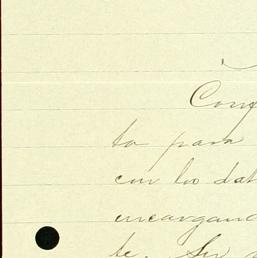 Conf
to para
con los dat
encargand
te. Su